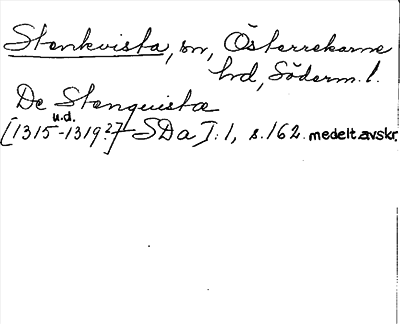 Stenkvista, sn, Österrekarne
hd, Söderm. l.
De Stenquista
u.d.
[1315-1319?] SDa I:1, s.162. medelt.avskr.